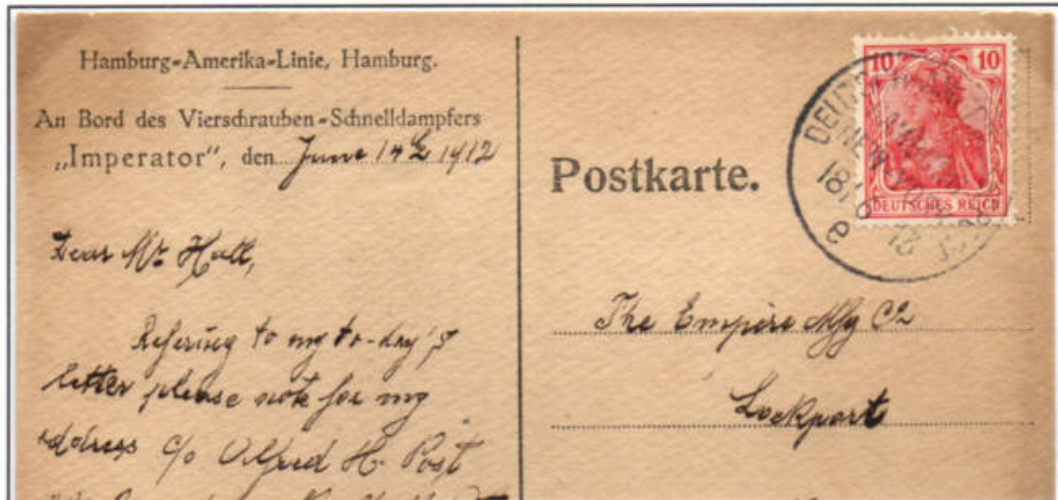 Hamburg-Amerika-Linie, Hamburg.
An Bord des Vierschrauben-Schnelldampfers
„Imperator“, den June 14th 1912
Dear Mr. Hall,
Refering to my to-day's
letter please note for my
address c/o Alfred H. Post
Postkarte.
10 10
DEUTSCHES REICH
The Empire Mfg Co
Lockport